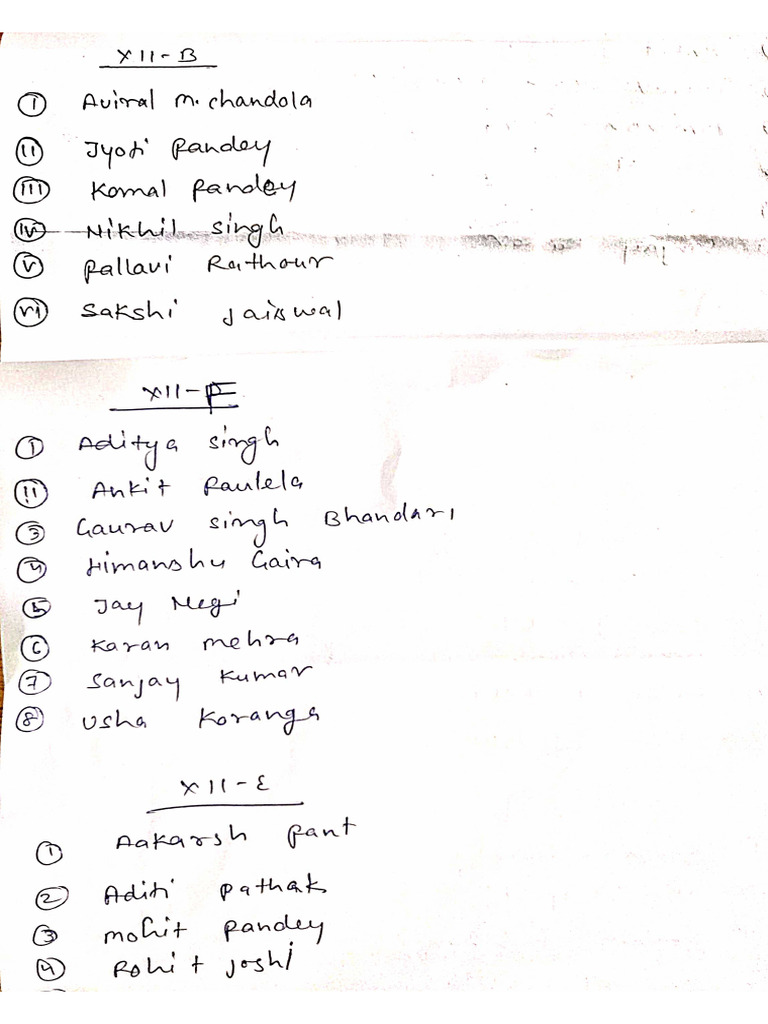 XII-B
I Aviral M. Chandola
II Jyoti Pandey
III Komal Pandey
IV Nikhil Singh
V Pallavi Rathour
VI Sakshi Jaiswal
XII-F
I Aditya Singh
II Ankit Raulela
3 Gaurav Singh Bhandari
4 Himanshu Gaira
5 Jay Negi
6 Karan Mehra
7 Sanjay Kumar
8 Usha Koranga
XII-E
1 Aakarsh Pant
2 Aditi Pathak
3 Mohit Pandey
4 Rohit Joshi